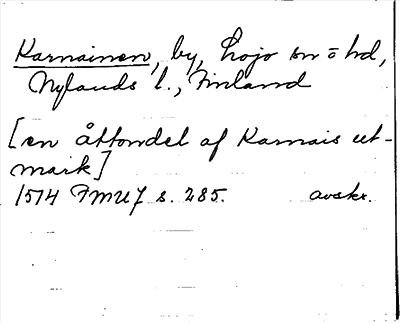 Karnainen, by, Lojo sn o hd,
Nylands l., Finland
[en åttondel af Karnais ut-
mark]
1514 FMU 7 s. 285. avskr.